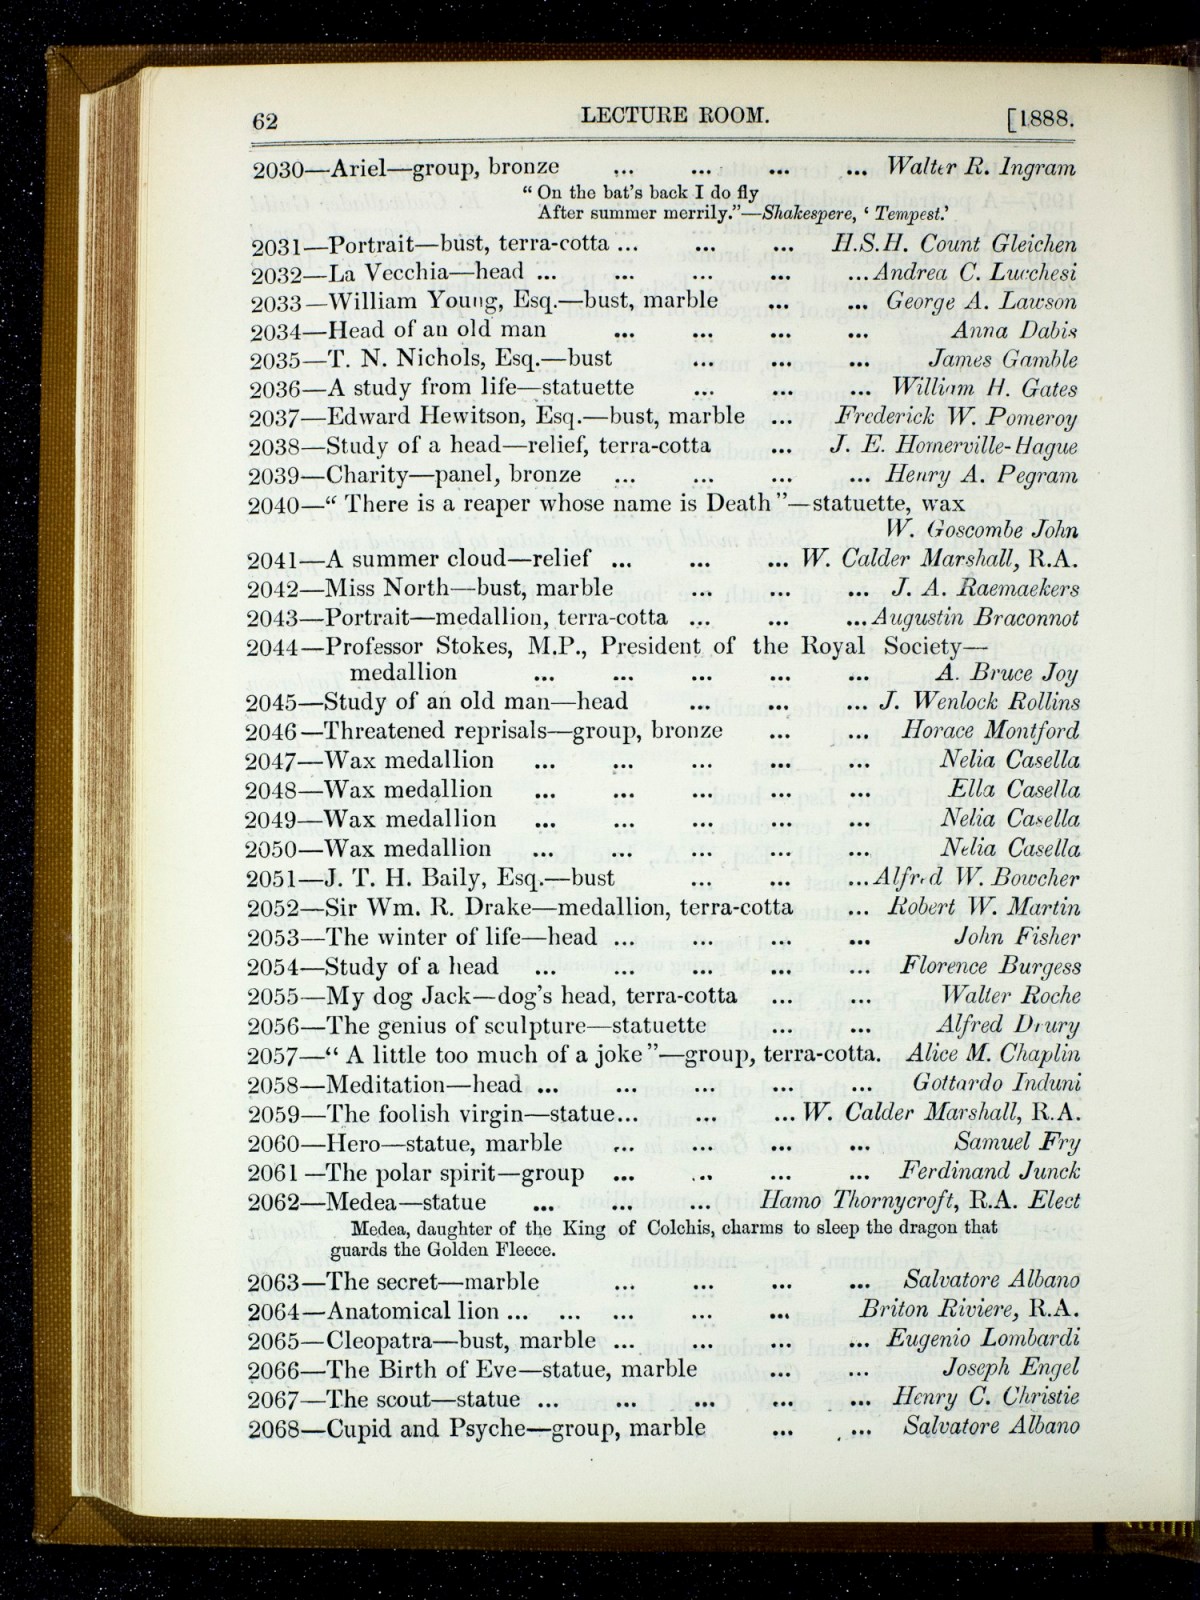 62 LECTURE ROOM. [1888.
2030—Ariel—group, bronze ... ... ... ... Walter R. Ingram
“ On the bat's back I do fly
After summer merrily.”—Shakespere, ‘ Tempest.’
2031—Portrait—bust, terra-cotta ... ... ... H.S.H. Count Gleichen
2032—La Vecchia—head ... ... ... ... ... Andrea C. Lucchesi
2033—William Young, Esq.—bust, marble ... ... George A. Lawson
2034—Head of an old man ... ... ... ... Anna Dabis
2035—T. N. Nichols, Esq.—bust ... ... ... James Gamble
2036—A study from life—statuette ... ... ... William H. Gates
2037—Edward Hewitson, Esq.—bust, marble ... Frederick W. Pomeroy
2038—Study of a head—relief, terra-cotta ... J. E. Homerville-Hague
2039—Charity—panel, bronze ... ... ... ... Henry A. Pegram
2040—“ There is a reaper whose name is Death ”—statuette, wax
W. Goscombe John
2041—A summer cloud—relief ... ... ... W. Calder Marshall, R.A.
2042—Miss North—bust, marble ... ... ... J. A. Raemaekers
2043—Portrait—medallion, terra-cotta ... ... ... Augustin Braconnot
2044—Professor Stokes, M.P., President of the Royal Society—
medallion ... ... ... ... ... A. Bruce Joy
2045—Study of an old man—head ... ... ... J. Wenlock Rollins
2046—Threatened reprisals—group, bronze ... ... Horace Montford
2047—Wax medallion ... ... ... ... ... Nelia Casella
2048—Wax medallion ... ... ... ... ... Ella Casella
2049—Wax medallion ... ... ... ... ... Nelia Casella
2050—Wax medallion ... ... ... ... ... Nelia Casella
2051—J. T. H. Baily, Esq.—bust ... ... ... Alfred W. Bowcher
2052—Sir Wm. R. Drake—medallion, terra-cotta ... Robert W. Martin
2053—The winter of life—head ... ... ... ... John Fisher
2054—Study of a head ... ... ... ... ... Florence Burgess
2055—My dog Jack—dog's head, terra-cotta ... ... Walter Roche
2056—The genius of sculpture—statuette ... ... Alfred Drury
2057—“ A little too much of a joke ”—group, terra-cotta. Alice M. Chaplin
2058—Meditation—head ... ... ... ... ... Gottardo Induni
2059—The foolish virgin—statue... ... ... W. Calder Marshall, R.A.
2060—Hero—statue, marble ... ... ... ... Samuel Fry
2061—The polar spirit—group ... ... ... ... Ferdinand Junck
2062—Medea—statue ... ... ... Hamo Thornycroft, R.A. Elect
Medea, daughter of the King of Colchis, charms to sleep the dragon that
guards the Golden Fleece.
2063—The secret—marble ... ... ... ... Salvatore Albano
2064—Anatomical lion ... ... ... ... ... Briton Riviere, R.A.
2065—Cleopatra—bust, marble ... ... ... ... Eugenio Lombardi
2066—The Birth of Eve—statue, marble ... ... Joseph Engel
2067—The scout—statue ... ... ... ... ... Henry C. Christie
2068—Cupid and Psyche—group, marble ... ... Salvatore Albano